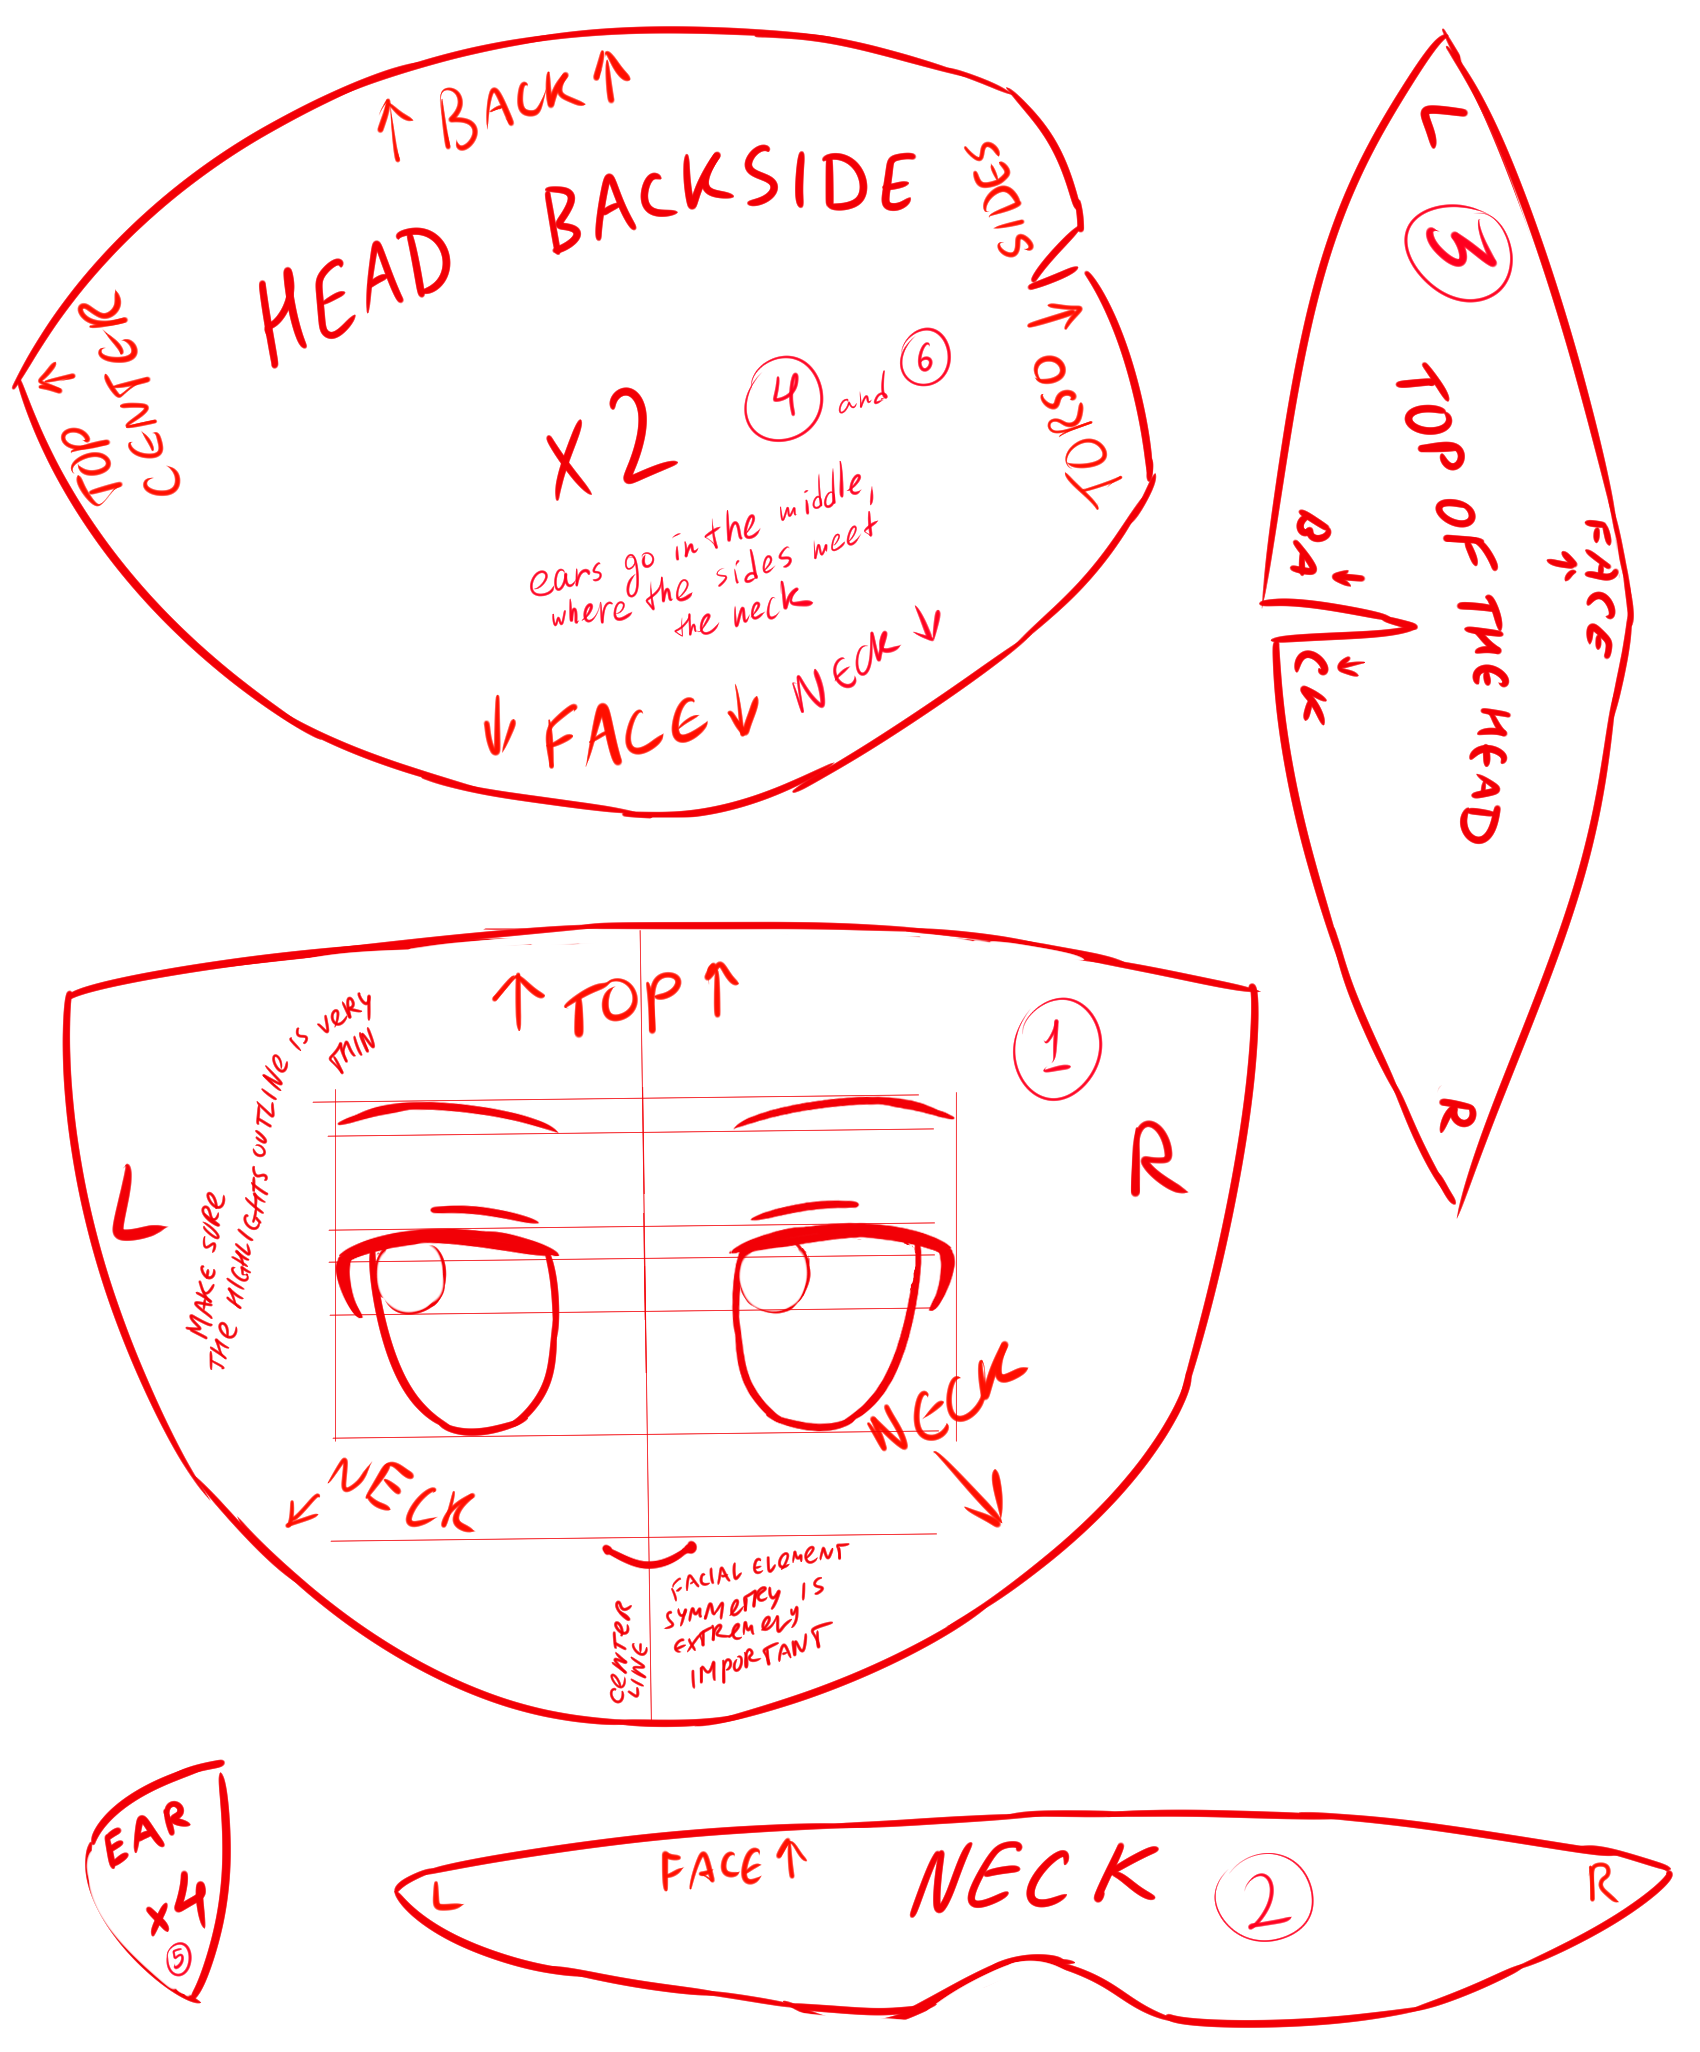 ↑ BACK ↑
HEAD BACKSIDE
SIDES
TOP ↑
CENTER
x2 4 and 6
TORSO ↑
ears go in the middle,
where the sides meet
the neck
↓ FACE ↓ NECK ↓
L
3
TOP OF THE HEAD
FACE
↑
BA CK
R
↑ TOP ↑
1
MAKE SURE
THE HIGHLIGHTS OUTLINE IS VERY
THIN
L
R
NECK
NECK
CENTER
LINE
FACIAL ELEMENT
SYMMETRY IS
EXTREMELY
IMPORTANT
EAR
x4
5
L
FACE ↑
NECK
2
R